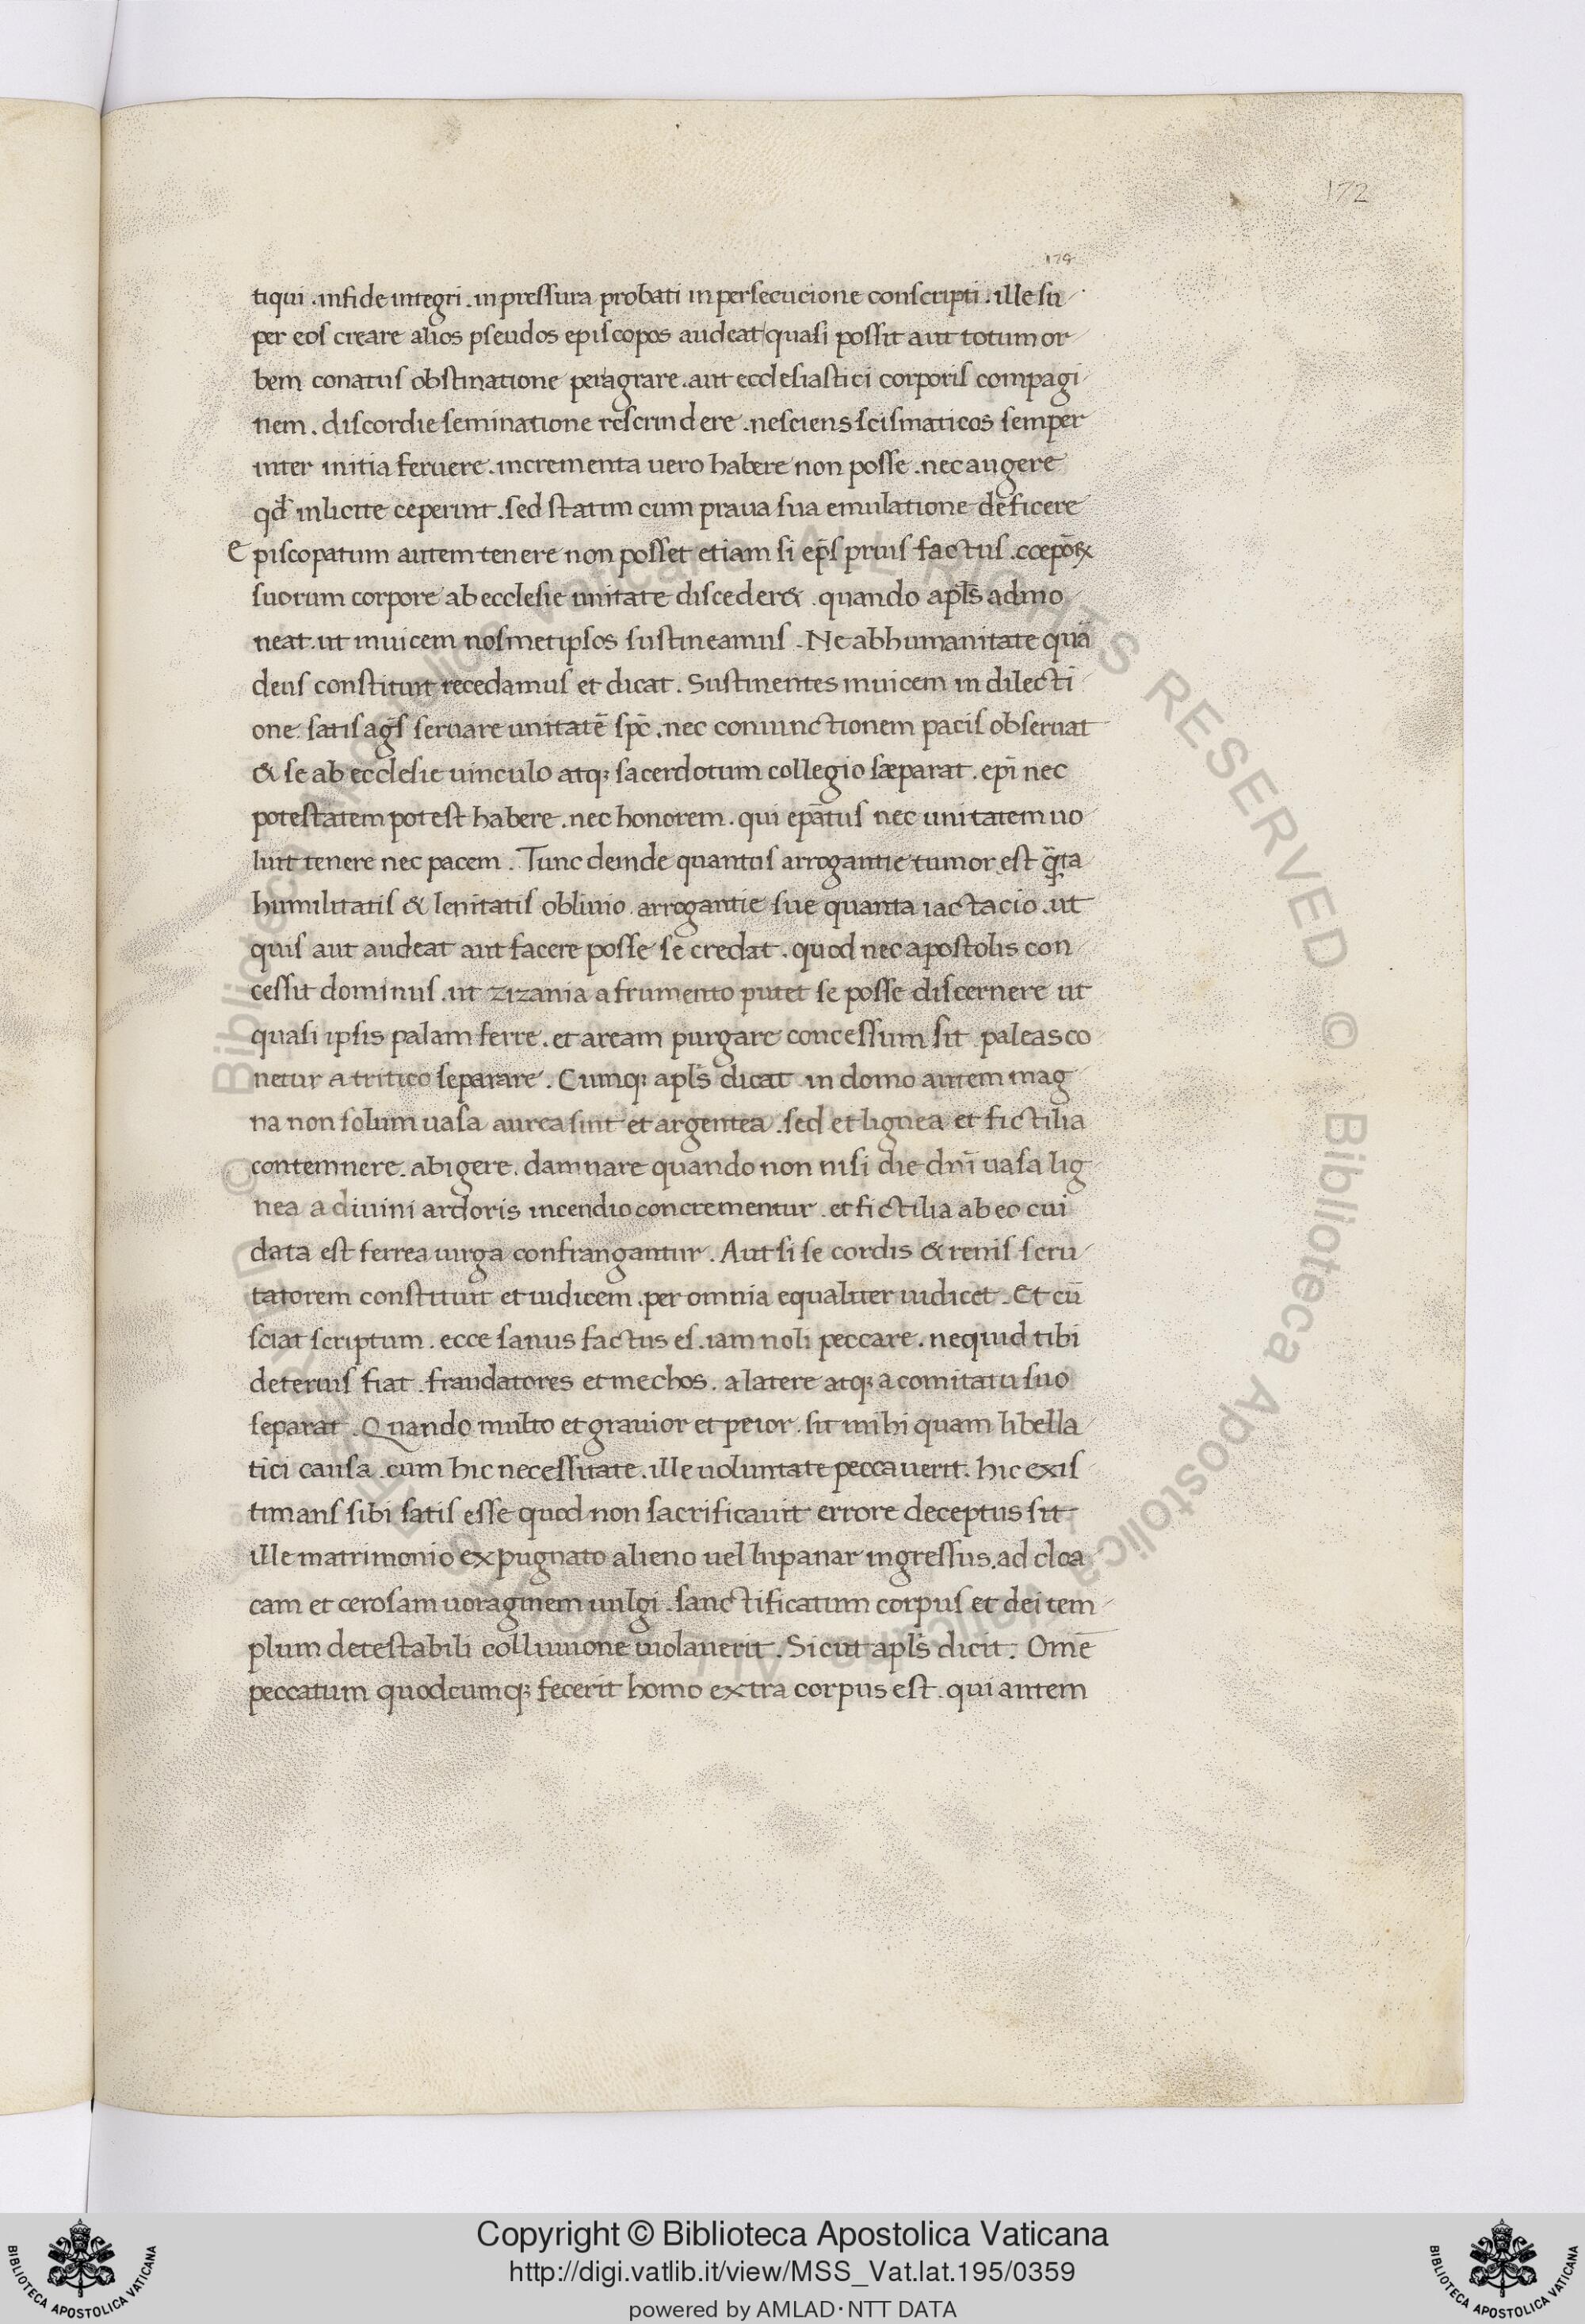 172
179
tiqui . infide integri . inpressura probati inpersecucione conscripti . ille su
per eos creare alios pseudos episcopos audeat quasi possit aut totum or
bem conatus obstinatione peragrare . aut ecclesiastici corporis compagi
nem . discordie seminatione rescindere . nesciens scismaticos semper
inter initia feruere . incrementa uero habere non posse . nec augere
qđ inlicite ceperint . sed statim cum praua sua emulatione deficere
Episcopatum autem tenere non posset etiam si ep̅s prius factus . coepōꝝ
suorum corpore ab ecclesie unitate disceder& . quando apl̅s admo
neat . ut inuicem nosmetipsos sustineamus . Ne abhumanitate quā
deus constituit recedamus et dicat . Sustinentes inuicem in dilecti
one satis ag̅s seruare unitatē sp̅c . nec coniunctionem pacis obseruat
& se ab ecclesie uinculo atq; sacerdotum collegio sæparat . ep̅i nec
potestatem potest habere . nec honorem . qui ep̅atus nec unitatem uo
luit tenere nec pacem . Tunc deinde quantus arrogantie tumor est q̅ta
humilitatis & lenitatis obliuio . arrogantie sue quanta iactacio . ut
quis aut audeat aut facere posse se credat . quod nec apostolis con
cessit dominus . ut zizania a frumento putet se posse discernere ut
quasi ipsis palam ferre . et aream purgare concessum sit . paleas co
netur a tritico separare . Cumq; apl̅s dicat . in domo autem mag
na non solum uasa aurea sint et argentea . sed et lignea et fictilia
contemnere . abigere . damnare quando non nisi die dn̅i uasa lig
nea a diuini ardoris incendio concrementur . et fictilia ab eo cui
data est ferrea uirga confrangantur . Aut si se cordis & renis scru
tatorem constituit et iudicem . per omnia equaliter iudicet . Et cū
sciat scriptum . ecce sanus factus es . iam noli peccare . nequid tibi
deterius fiat . fraudatores et mechos . a latere atq; a comitatu suo
separat . Quando multo et grauior et peior . sit mihi quam libella
tici causa . cum hic necessitate . ille uoluntate peccauerit . hic exis
timans sibi satis esse quod non sacrificauit errore deceptus sit
ille matrimonio expugnato alieno uel lupanar ingressus . ad cloa
cam et cerosam uoraginem uulgi . sanctificatum corpus et dei tem
plum detestabili colluuione uiolauerit . Sicut apl̅s dicit . Omē
peccatum quodcumq; fecerit homo extra corpus est . qui autem
Copyright © Biblioteca Apostolica Vaticana
http://digi.vatlib.it/view/MSS_Vat.lat.195/0359
powered by AMLAD·NTT DATA
BIBLIOTECA APOSTOLICA VATICANA
BIBLIOTECA APOSTOLICA VATICANA